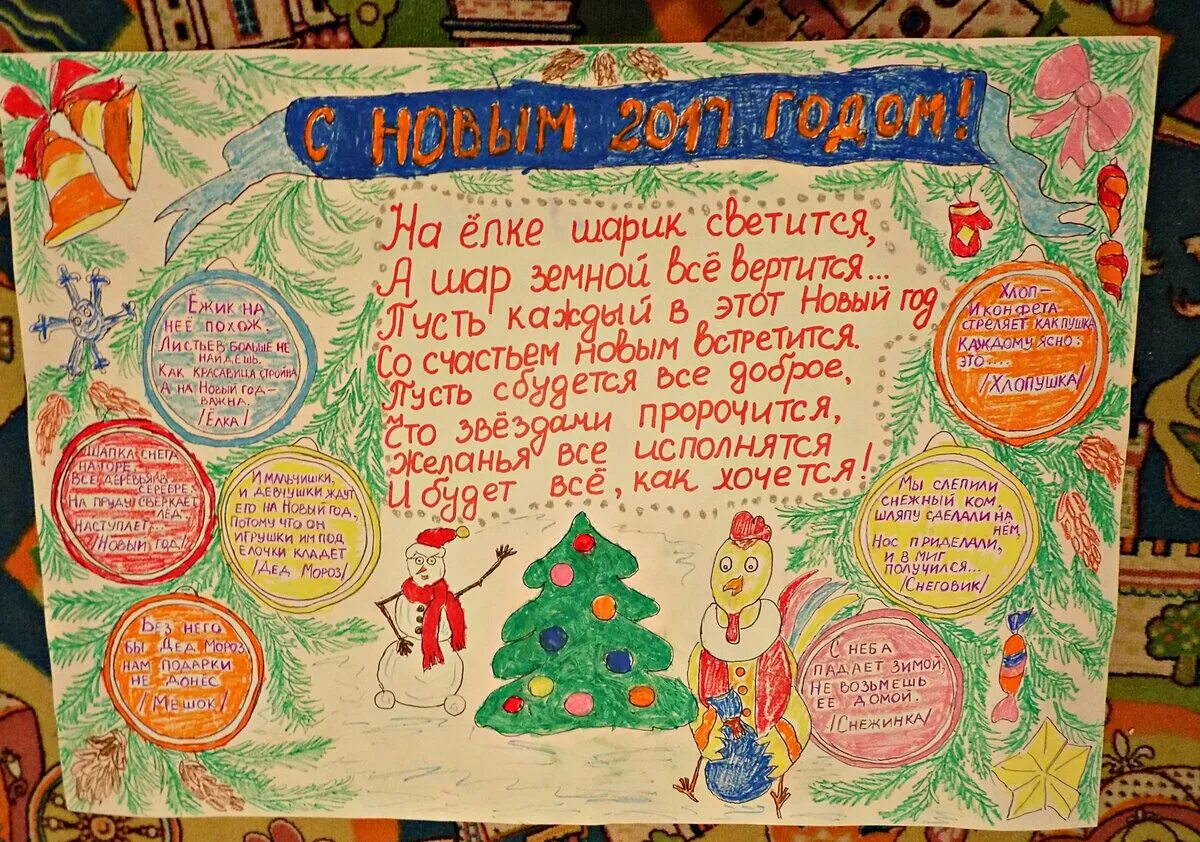 С НОВЫМ 2017 ГОДОМ!
На ёлке шарик светится,
А шар земной всё вертится...
Пусть каждый в этот Новый год
Со счастьем новым встретится.
Пусть сбудется все доброе,
Что звёздами пророчится,
Желанья все исполнятся
И будет всё, как хочется!
Ёжик на
неё похож,
Листьев больше не
найдёшь.
Как красавица стройна
А на Новый год-
важна.
/Ёлка/
Шапка снега
на горе,
Все деревья в
серебре,
На пруду сверкает
лёд,
Наступает...
/Новый год/
И мальчишки,
и девчушки ждут
его на Новый год,
Потому что он
игрушки им под
ёлочки кладёт
/Дед Мороз/
Без него
бы Дед Мороз
нам подарки
не донёс
/Мешок/
Хлоп-
И конфета
стреляет как пушка
Каждому ясно:
это....
/Хлопушка/
Мы слепили
снежный ком,
шляпу сделали на
нём,
Нос приделали,
и в миг
получился...
/Снеговик/
С неба
падает зимой,
Не возьмёшь
её домой.
/Снежинка/